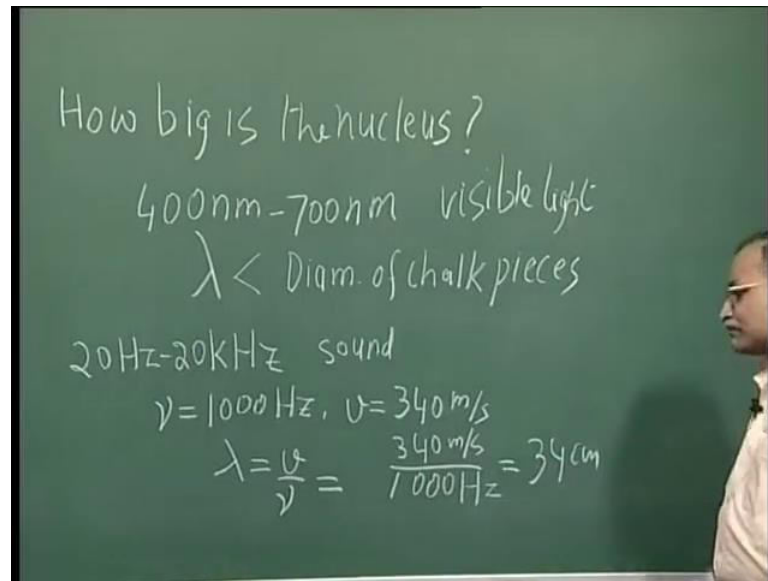 How big is the nucleus?
400nm-700nm visible light
λ < Diam. of chalk pieces
20Hz-20KHz sound
ν=1000Hz, v=340m/s
λ = v/ν = 340m/s / 1000Hz = 34cm